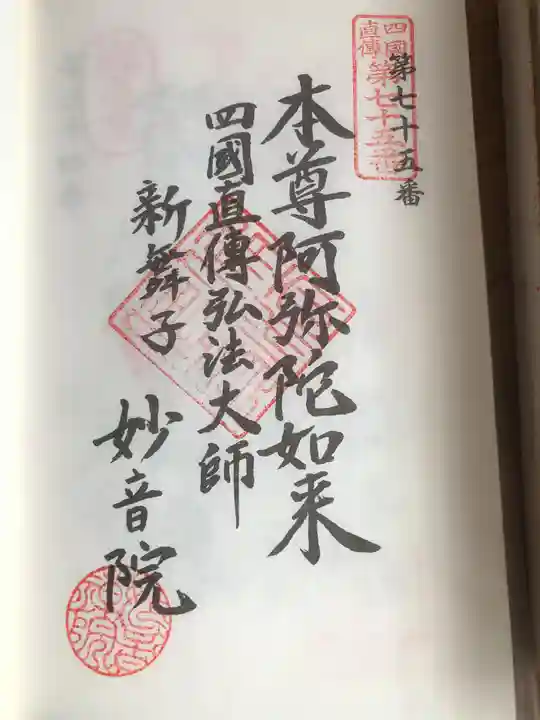 四國直傳
第七十五番
第七十五番
本尊阿弥陀如来
四國直傳弘法大師
新舞子
妙音院